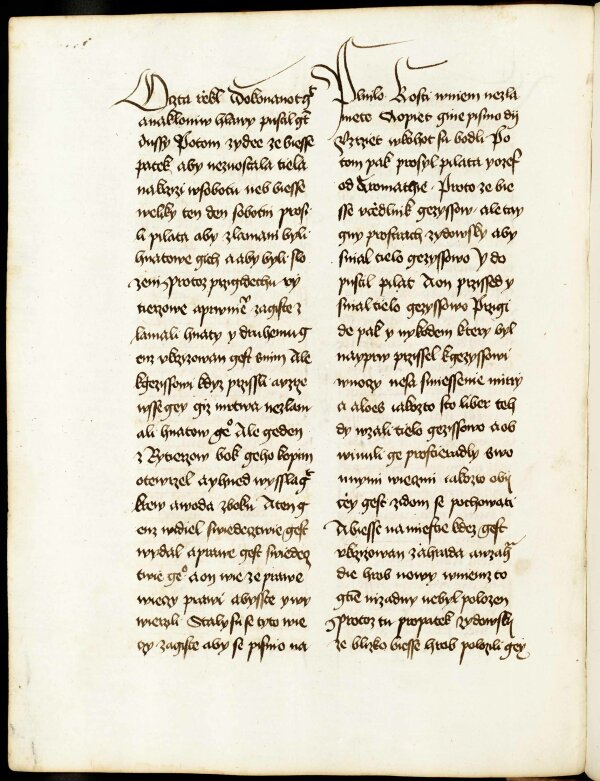 Ozta rżekl Dokonanot gt
a nakloniw hlawy pusal gt
dussy Potom zydee ze biesse
patek aby neznostala tiela
na krzizi w sobotu neb biesse
weliky ten den sobotni prosi
li pilata aby zlamani byli
hnatowe gich a aby byli slo
zeni Protoz przigidechu ry
tierzowe a prwnie zagiste z
lamali hnaty y druhemu g
enz vkrzizowan gest s nim Ale
k gezissowi kdyz przissli a vzrze
wsse gey giz mrtwa nezlam
ali hnatow geo Ale geden
z Rytierzow bok geho kopim
otewrzel a yhned wyssla gt
krew a woda z boku A ten g
enz widiel swiedeztwie gest
wydal a prawe gest swiedez
twie geo a on wie ze prawe
wieczy prawi abysste y wy
wierzili Staly su se tyto wie
czy zagiste aby se pismo na
Plnilo Kosti w niem nezla
mete A opiet gine pismo dij
Vzrziet w kohot su bodli Po
tom pak prosyl pilata yozef
od Aromathie Proto ze bie
sse vczedlnik gezyssow ale tay
gny pro strach zydowsky aby
snial tielo gezyssowo Y do
pustil pilat A on przissed y
snial tielo gezyssowo Przigi
de pak y nykodem ktery byl
nayprw przissel k gezyssowi
w noczy nesa smiessenie mirry
a aloes iakozto sto liber teh
dy wzali tielo gezyssowo a ob
winuli ge prostieradly s wo
nnymi wieczmi iakozto obij
czey gest zidom se pochowati
A biesse na miestie kdez gest
vkrzizowan zahrada a w zah
die hrob nowy w niemz to
gestie nizadny nebyl polozen
Protoz tu pro patek zydowskij
ze blizko biesse hrob polozili gey